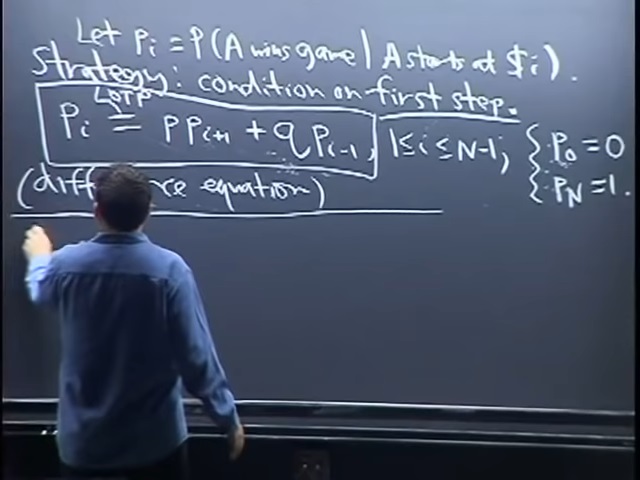 Let pᵢ = P(A wins game | A starts at $i).
Strategy: condition on first step.
LOTP
pᵢ = p pᵢ₊₁ + q pᵢ₋₁, 1≤i≤N-1, { p₀ = 0
p_N = 1.
(difference equation)